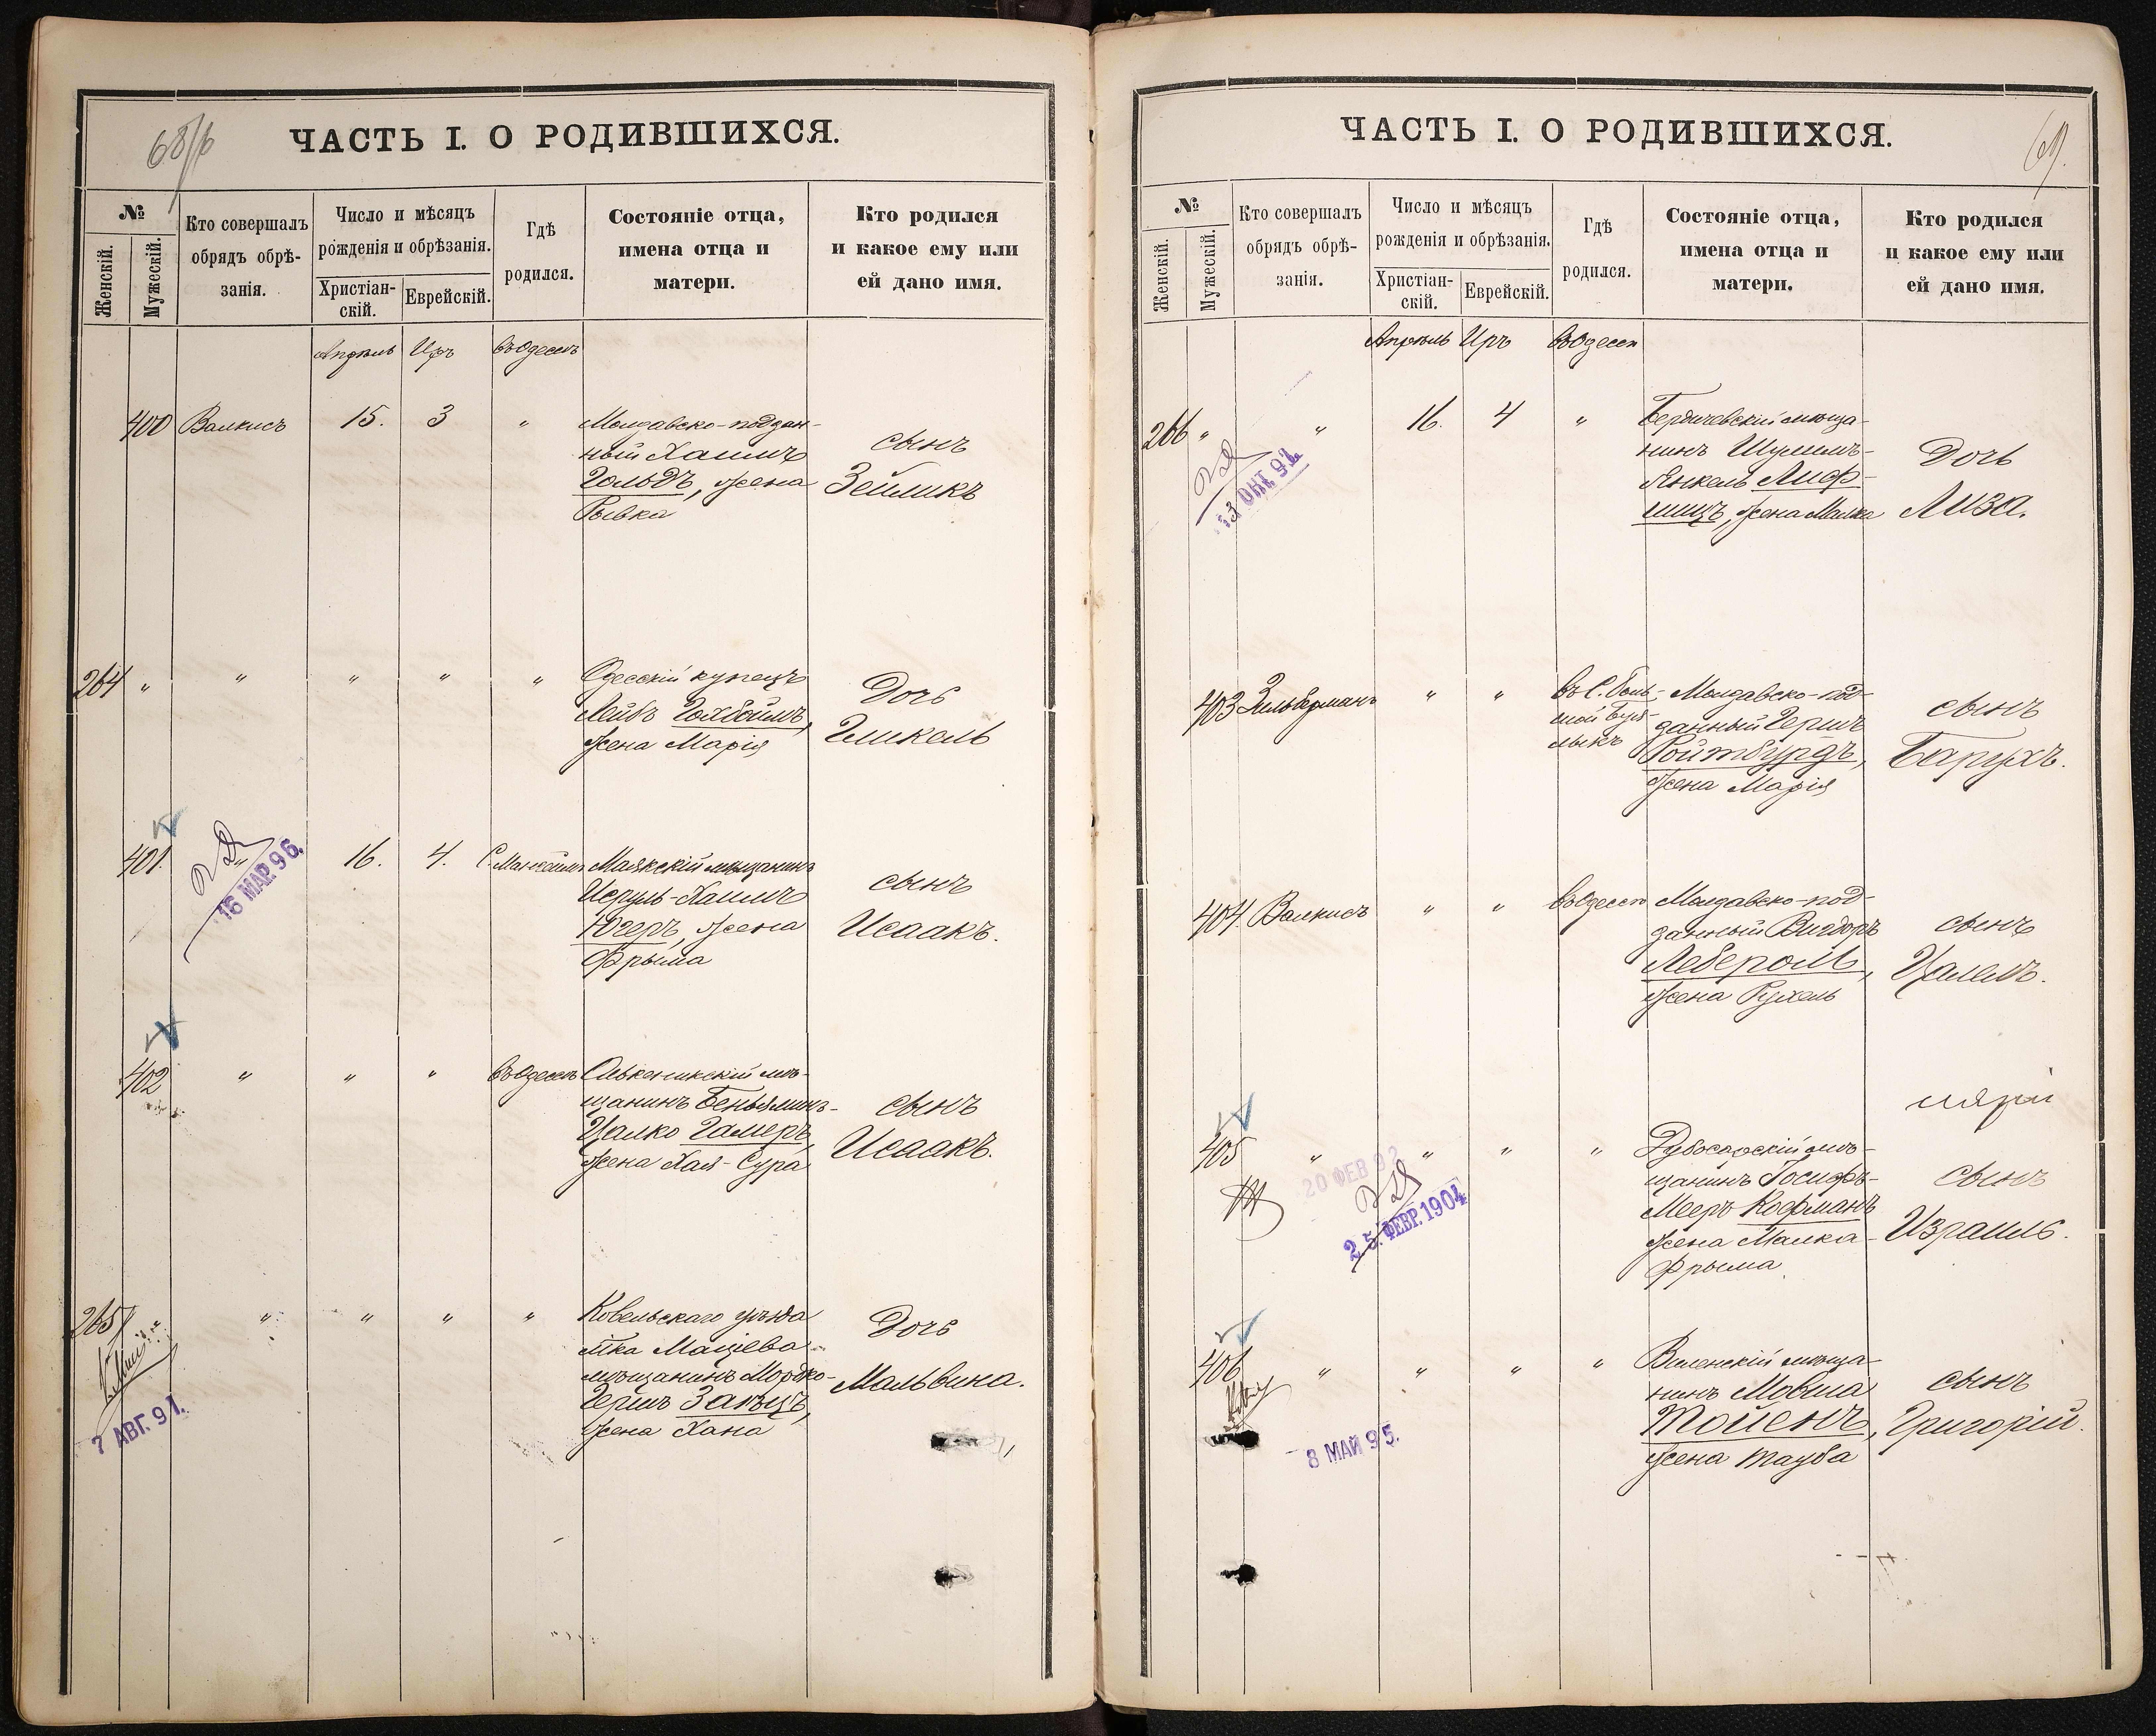 68/б
ЧАСТЬ I. О РОДИВШИХСЯ.
№
Женскій.
Мужескій.
Кто совершалъ
обрядъ обрѣ-
занія.
Число и мѣсяцъ
рожденія и обрѣзанія.
Христіан-
скій.
Еврейскій.
Гдѣ
родился.
Состояніе отца,
имена отца и
матери.
Кто родился
и какое ему или
ей дано имя.
Апрѣль Иръ въ Одессѣ
400 Валкисъ 15. 3 "
Молдавско-поддан-
ный Хаимъ
Гольдъ, жена
Рывка
сынъ
Зейликъ
264 " " " " "
Одесскій купецъ
Лейбъ Гохбоимъ,
жена Марія
Дочь
Гликель
401. " 16. 4.
16 МАР. 96.
Маякскій мѣщанинъ
Исруль-Хаимъ
Югеръ, жена
Фрыма
сынъ
Исаакъ.
402 " " " въ Одессѣ
Олькеникскій мѣ-
щанинъ Беньяминъ-
Цалко Гамеръ,
жена Хая-Сура
сынъ
Исаакъ.
265 " " " " "
7 АВГ. 91.
Ковельскаго уѣзда
м-ка Маціева
мѣщанинъ Мордко-
Гершъ Заецъ,
жена Хана
Дочь
Мальвина.
69.
ЧАСТЬ I. О РОДИВШИХСЯ.
№
Женскій.
Мужескій.
Кто совершалъ
обрядъ обрѣ-
занія.
Число и мѣсяцъ
рожденія и обрѣзанія.
Христіан-
скій.
Еврейскій.
Гдѣ
родился.
Состояніе отца,
имена отца и
матери.
Кто родился
и какое ему или
ей дано имя.
Апрѣль Иръ въ Одессѣ
266 " " 16. 4 "
13 ОКТ. 91.
Бердичевскій мѣща-
нинъ Шулимъ-
Янкель Лиф-
шицъ, жена Малка
Дочь
Лиза.
403 Зильберманъ " "
въ С. Боль-
шой Буя-
лыкъ
Молдавско-под-
данный Гершъ
Ройтбурдъ,
жена Марія
сынъ
Барухъ.
404. Валкисъ " " въ Одессѣ
Молдавско-под-
данный Вигдоръ
Лебероль,
жена Рухель
сынъ
Цалелъ.
405 " " " "
20 ФЕВ 92
25. ФЕВР. 1904
Дубосарскій мѣ-
щанинъ Іосифъ-
Мееръ Кофманъ
жена Малка-
Фрыма.
сынъ
Израиль.
406 " " " "
8 МАЙ 95.
Виленскій мѣща-
нинъ Мовша
Тойенъ,
жена Тауба
сынъ
Григорій.